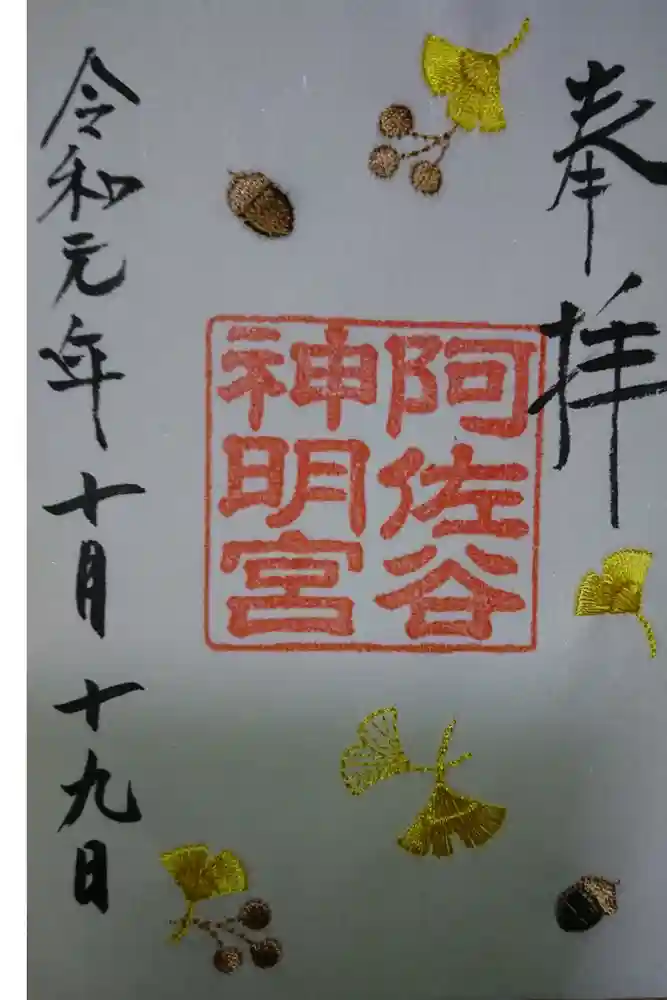 奉拝
阿佐谷
神明宮
令和元年十月十九日